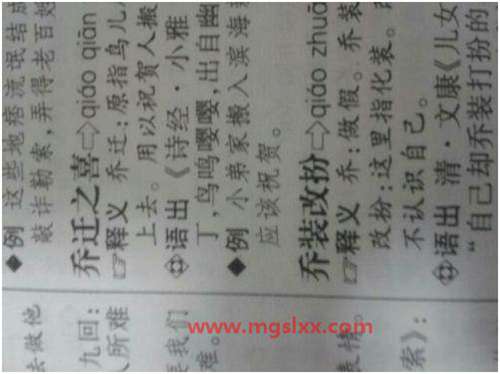 去做他
九回:
人所难
我们
难。
表情。
索》:
◆例 这些地痞流氓结成
敲诈勒索,弄得老百姓
乔迁之喜⇨qiáo qiān
☞释义 乔迁:原指鸟儿
上去。用以祝贺人搬
语出《诗经·小雅
丁,鸟鸣嘤嘤,出自幽
◆例 小弟家搬入滨海
应该祝贺。
乔装改扮⇨qiáo zhuā
☞释义 乔:做假。乔装
改扮:这里指化装。
不认识自己。
语出 清·文康《儿女
“自己却乔装打扮的
www.mgslxx.com